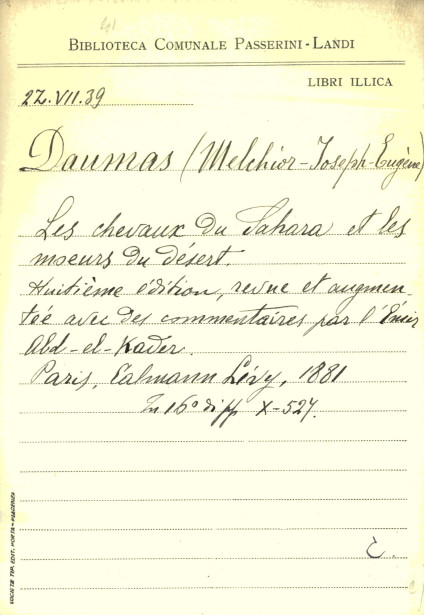 41
BIBLIOTECA COMUNALE PASSERINI-LANDI
LIBRI ILLICA
27.VII.39
Daumas (Melchior-Joseph-Eugène)
Les chevaux du Sahara et les
moeurs du désert.
Huitième édition, revue et augmen-
tée avec des commentaires par l'Émir
Abd-el-Kader.
Paris, Calmann Lévy, 1881
In 16° di pp X-527.
SOCIETÀ TIP. EDIT. PORTA - PIACENZA
C.